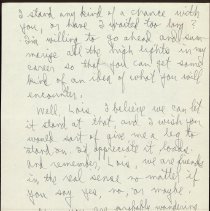 I stand any kind of a chance with
you, or have I waited too long?
I'm willing to go ahead and sum-
marize all the high lights in my
career so that you can get some
kind of an idea of what you will
encounter.
Well Lois, I believe we can let
it stand at that and I wish you
would sort of give me a leg to
stand on. I'd appreciate it loads
and remember, Lois, we are friends
in the real sense no matter if
you say yes, no, or maybe!
you are probably wondering